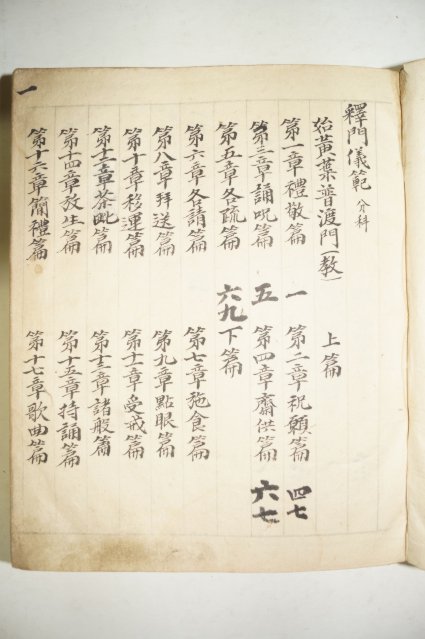 釋門儀範 分科
始黃葉普渡門(教) 上篇
第一章禮敬篇 一 第二章祝願篇 四七
第三章誦呪篇 五 第四章齋供篇 六七
第五章各疏篇 六九 下篇
第六章各請篇 第七章施食篇
第八章拜送篇 第九章點眼篇
第十章移運篇 第十一章受戒篇
第十二章茶毗篇 第十三章諸般篇
第十四章放生篇 第十五章持誦篇
第十六章簡禮篇 第十七章歌曲篇
一